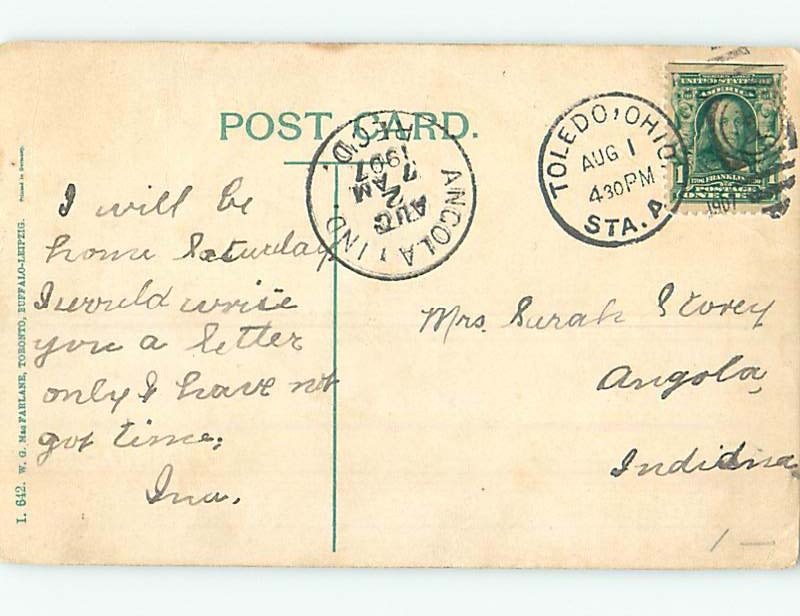 POST CARD.
TOLEDO, OHIO
AUG 1
430 PM
STA. A
1907
SERIES 1902
UNITED STATES OF
AMERICA
FRANKLIN
POSTAGE
1 ONE CENT 1
ANGOLA, IND.
AUG
2
7 AM
1907
REC'D.
I will be
home Saturday
I would write
you a letter
only I have not
got time.
Ina.
Mrs. Surah Storey
Angola,
Indiana
1 —
I. 642. W. G. MacFARLANE, TORONTO, BUFFALO-LEIPZIG. Printed in Germany.